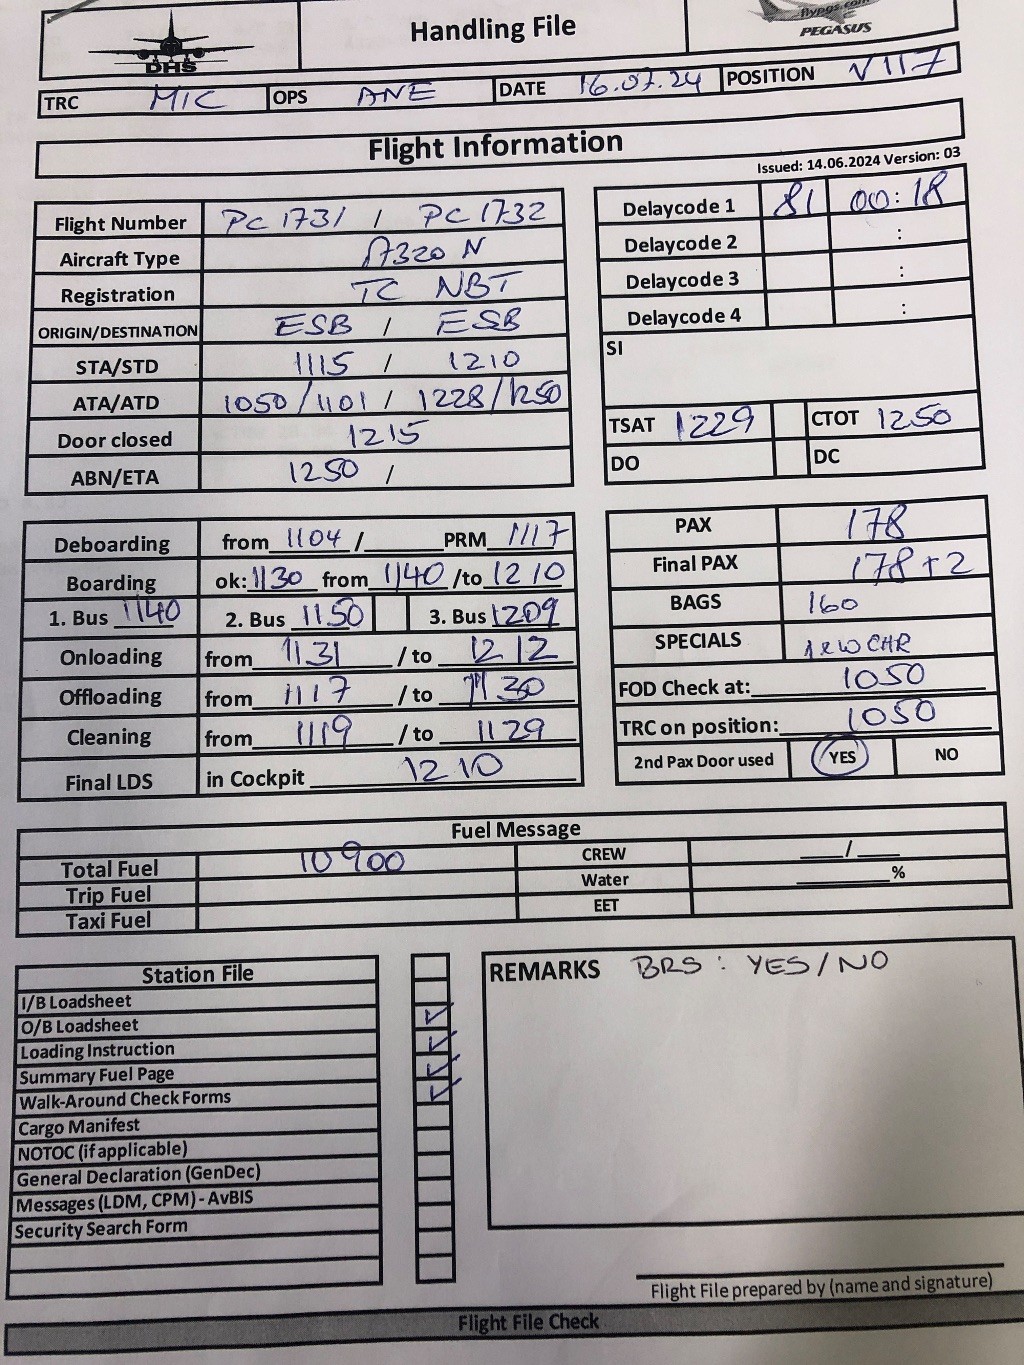 Handling File
flypgs.com
PEGASUS
DHS
TRC MIC OPS ANE DATE 16.07.24 POSITION V117
Flight Information
Issued: 14.06.2024 Version: 03
Flight Number PC 1731 / PC 1732
Aircraft Type A320 N
Registration TC NBT
ORIGIN/DESTINATION ESB / ESB
STA/STD 1115 / 1210
ATA/ATD 1050/1101 / 1228/1250
Door closed 1215
ABN/ETA 1250 /
Delaycode 1 81 00:18
Delaycode 2 :
Delaycode 3 :
Delaycode 4 :
SI
TSAT 1229 CTOT 1250
DO DC
Deboarding from 1104 / PRM 1117
Boarding ok: 1130 from 1140 /to 1210
1. Bus 1140 2. Bus 1150 3. Bus 1209
Onloading from 1131 / to 1212
Offloading from 1117 / to 1130
Cleaning from 1119 / to 1129
Final LDS in Cockpit 1210
PAX 178
Final PAX 178+2
BAGS 160
SPECIALS 1xWCHR
FOD Check at: 1050
TRC on position: 1050
2nd Pax Door used YES NO
Fuel Message
Total Fuel 10900 CREW /
Trip Fuel Water %
Taxi Fuel EET
Station File
I/B Loadsheet
O/B Loadsheet
Loading Instruction
Summary Fuel Page
Walk-Around Check Forms
Cargo Manifest
NOTOC (if applicable)
General Declaration (GenDec)
Messages (LDM, CPM) - AvBIS
Security Search Form
REMARKS BRS: YES/NO
Flight File prepared by (name and signature)
Flight File Check